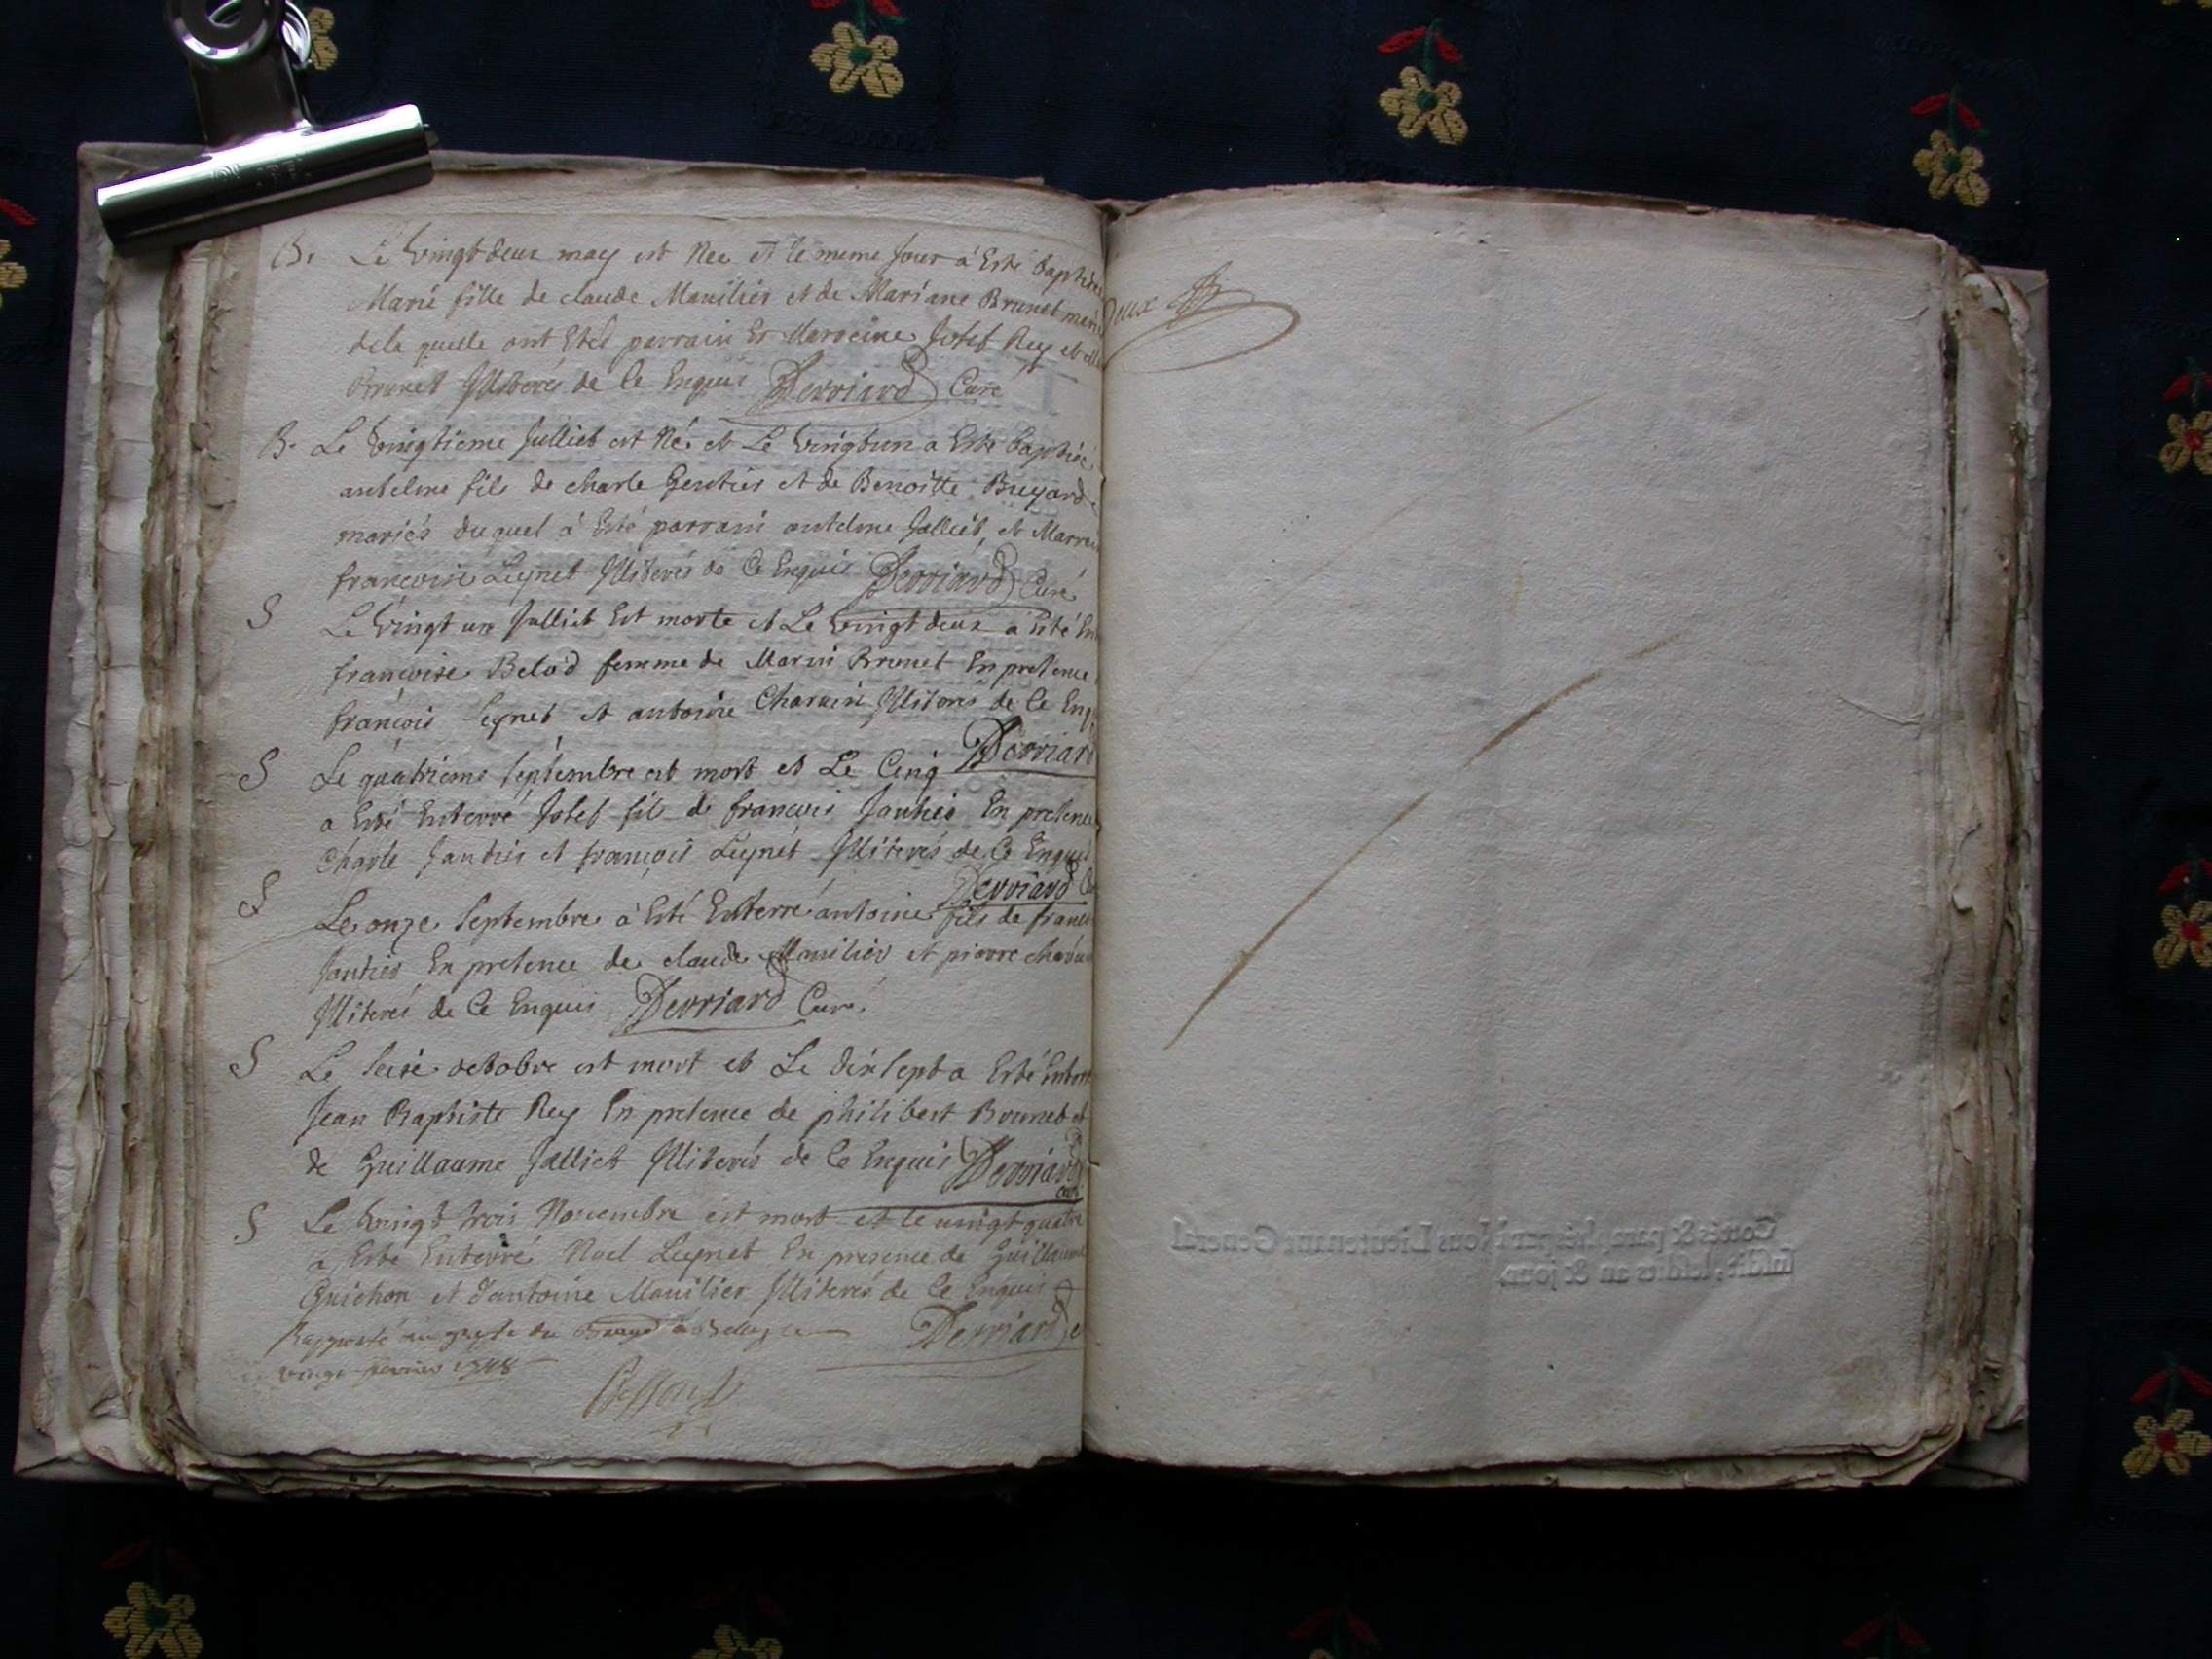 B. Le vingt deux may est Nee et le meme Jour à Esté baptisée
Marie fille de claude Mauilier et de Mariane Brunet
de la quelle ont Etés parrain Et Marreine Josef Rey et
Brunet Illiterés de Ce Enquis Derriard Curé
B. Le vingtieme Julliet est Né et Le vingtun a Esté baptisé
antelme fils de charle Gentier et de Benoitte Bugard
mariés duquel à Esté parrain antelme Jalliet, et Marrei
francoise Leynet Illiterés de Ce Enquis Derriard Curé
S Le vingt un Julliet Est morte et Le vingt deux a Esté En
francoise Belod femme de Marin Brunet En presence
françois Leynet et antoine Charuin Illiterés de Ce Enq
Derriard
S Le quatrieme septembre est mort et Le Cinq
a Esté Enterré Josef fils de francois Jantier En presence
Charle Jantier et françois Leynet Illiterés de Ce Enquis
Derriard Cu
S Le onze Septembre à Esté Enterré antoine fils de franco
Jantier En presence de claude Mauilier et pierre charui
Illiterés de Ce Enquis Derriard Curé
S Le seise octobre est mort et Le dix sept a Esté Enterr
Jean Baptiste Rey En presence de philibert Brunet et
de Guillaume Jalliet Illiterés de Ce Enquis Derriard
curé
S Le vingt trois Nouembre est mort et le uingt quatre
a Esté Enterré Noel Leynet En presence de Guillaume
Guichon et d'antoine Mauilier Illiterés de Ce Enquis
Derriard c
Rapporté au greffe du à Belley ce
vingt feurier 1748
Deux
Cottés & paraphés par Nous Lieutenant General
susdit, lesdits an & jour.